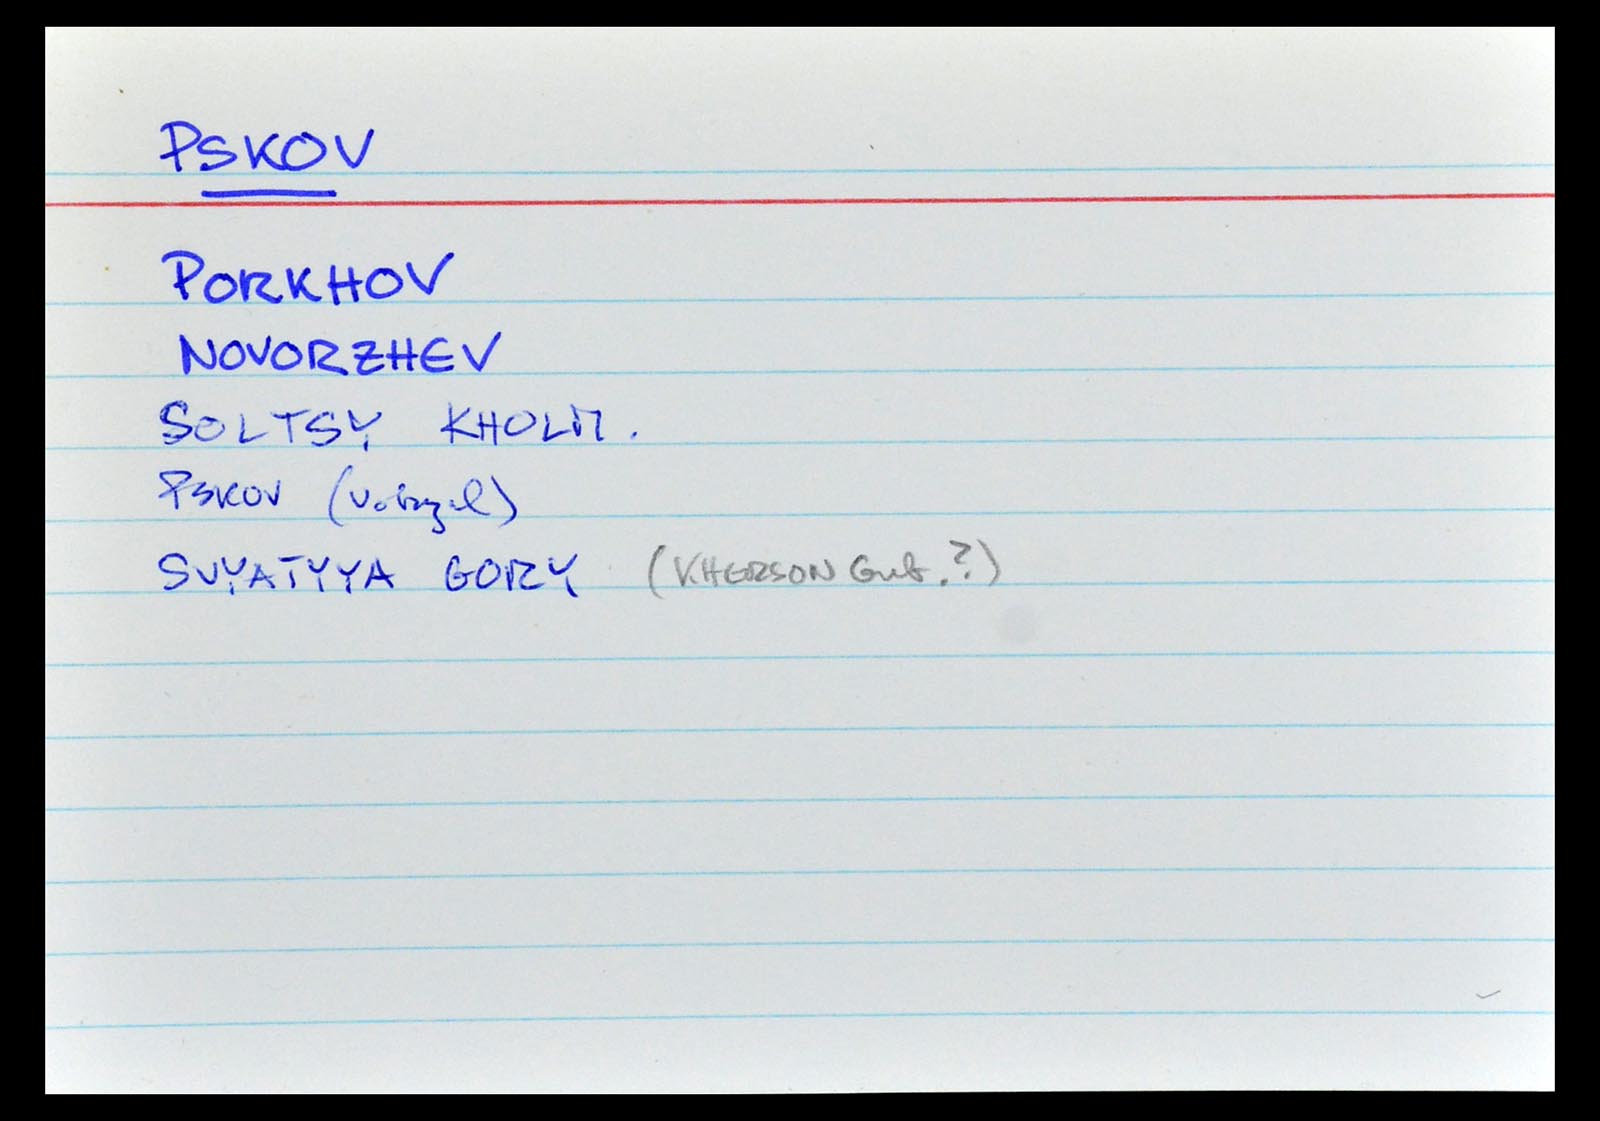 PSKOV
PORKHOV
NOVORZHEV
SOLTSY KHOLM.
PSKOV (vokzal)
SVYATYYA GORY (KHERSON Gub.?)